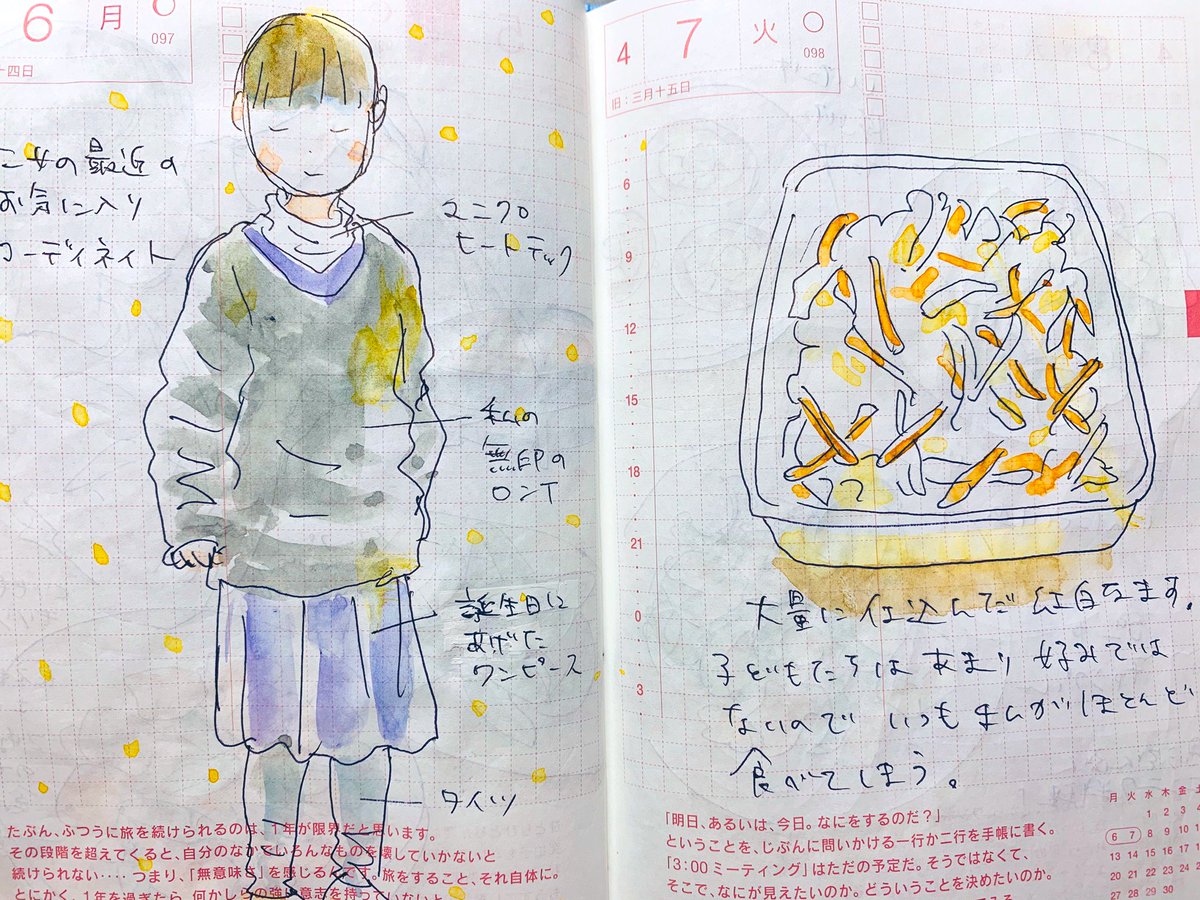 6 月 097
十四日
二女の最近の
お気に入り
コーディネイト
ユニクロ
ヒートテック
私の
無印の
ロンT
誕生日に
あげた
ワンピース
タイツ
たぶん、ふつうに旅を続けられるのは、1年が限界だと思います。
その段階を超えてくると、自分のなかでいろんなものを壊していかないと
続けられない‥‥つまり、「無意味さ」を感じるんです。旅をすること、それ自体に。
とにかく、1年を過ぎたら、何かしらの強い意志を持っていないと
4 7 火 098
旧：三月十五日
6
9
12
15
18
21
0
3
大量に仕込んだ紅白なます。
子どもたちはあまり好みでは
ないので いつも私がほとんど
食べてしまう。
「明日、あるいは、今日。なにをするのだ？」
ということを、じぶんに問いかける一行か二行を手帳に書く。
「3：00ミーティング」はただの予定だ。そうではなくて、
そこで、なにが見えたいのか。どういうことを決めたいのか。
月 火 水 木 金 土
1 2 3 4
6 7 8 9 10 11
13 14 15 16 17
20 21 22 23 24
27 28 29 30